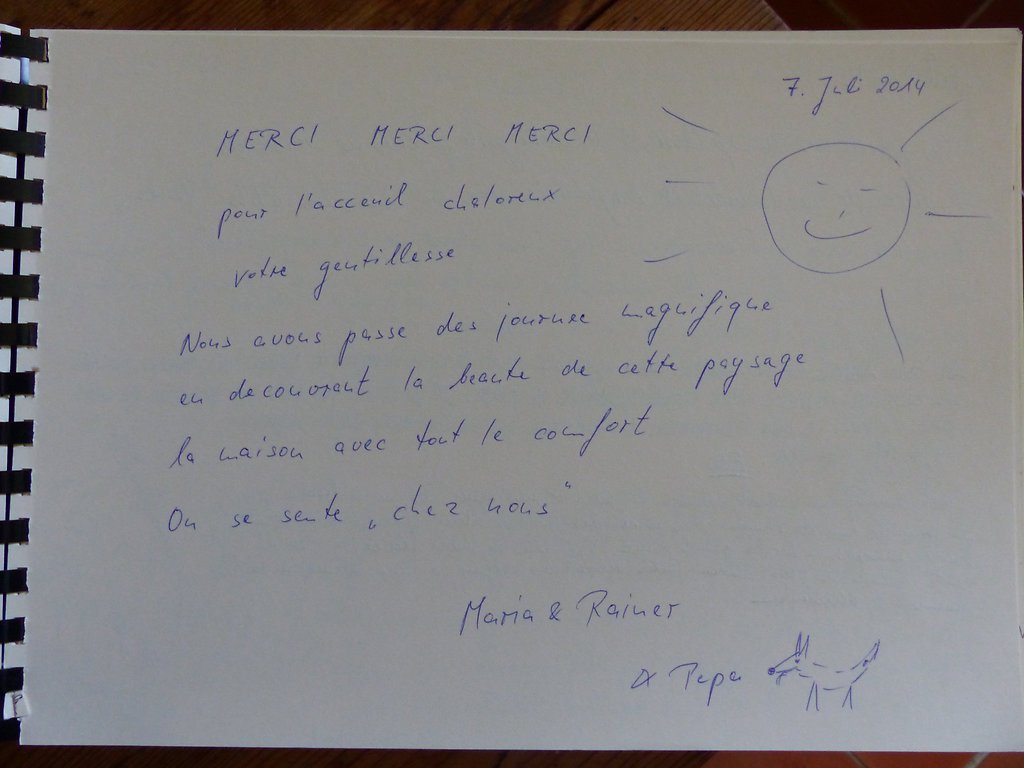 7. Juli 2014
MERCI MERCI MERCI
pour l'acceuil chaloreux
votre gentillesse
Nous avons passe des journee magnifique
en decouvrant la beaute de cette paysage
la maison avec tout le comfort
On se sente „chez nous"
Maria & Rainer
& Pepe